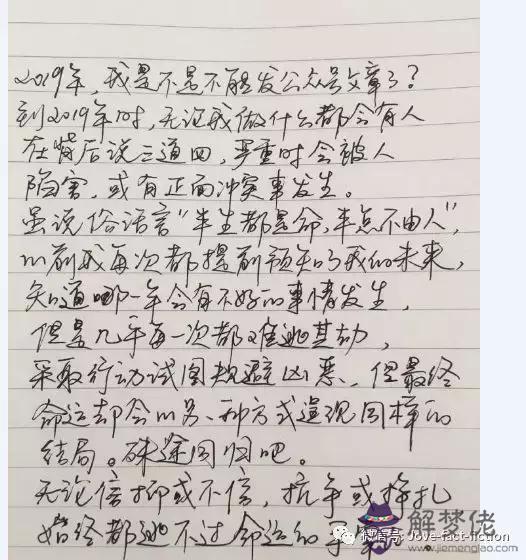 2019年，我是不是不能发公众号文章了？
到2019年时，无论我做什么都会有人
在背后说三道四，严重时会被人
陷害，或有正面冲突事发生。
虽说俗话言“半生都是命，半点不由人”，
以前我每次都提前预知了我的未来，
知道哪一年会有不好的事情发生，
但是几乎每一次都难逃其劫，
采取行动试图规避凶恶、但最终
命运却会以另一种方式造现同样的
结局。殊途同归吧。
无论信抑或不信，抗争或挣扎
始终都逃不过命运的手
微信号: love-fact-fiction
解梦佬
www.jiemenglao.com